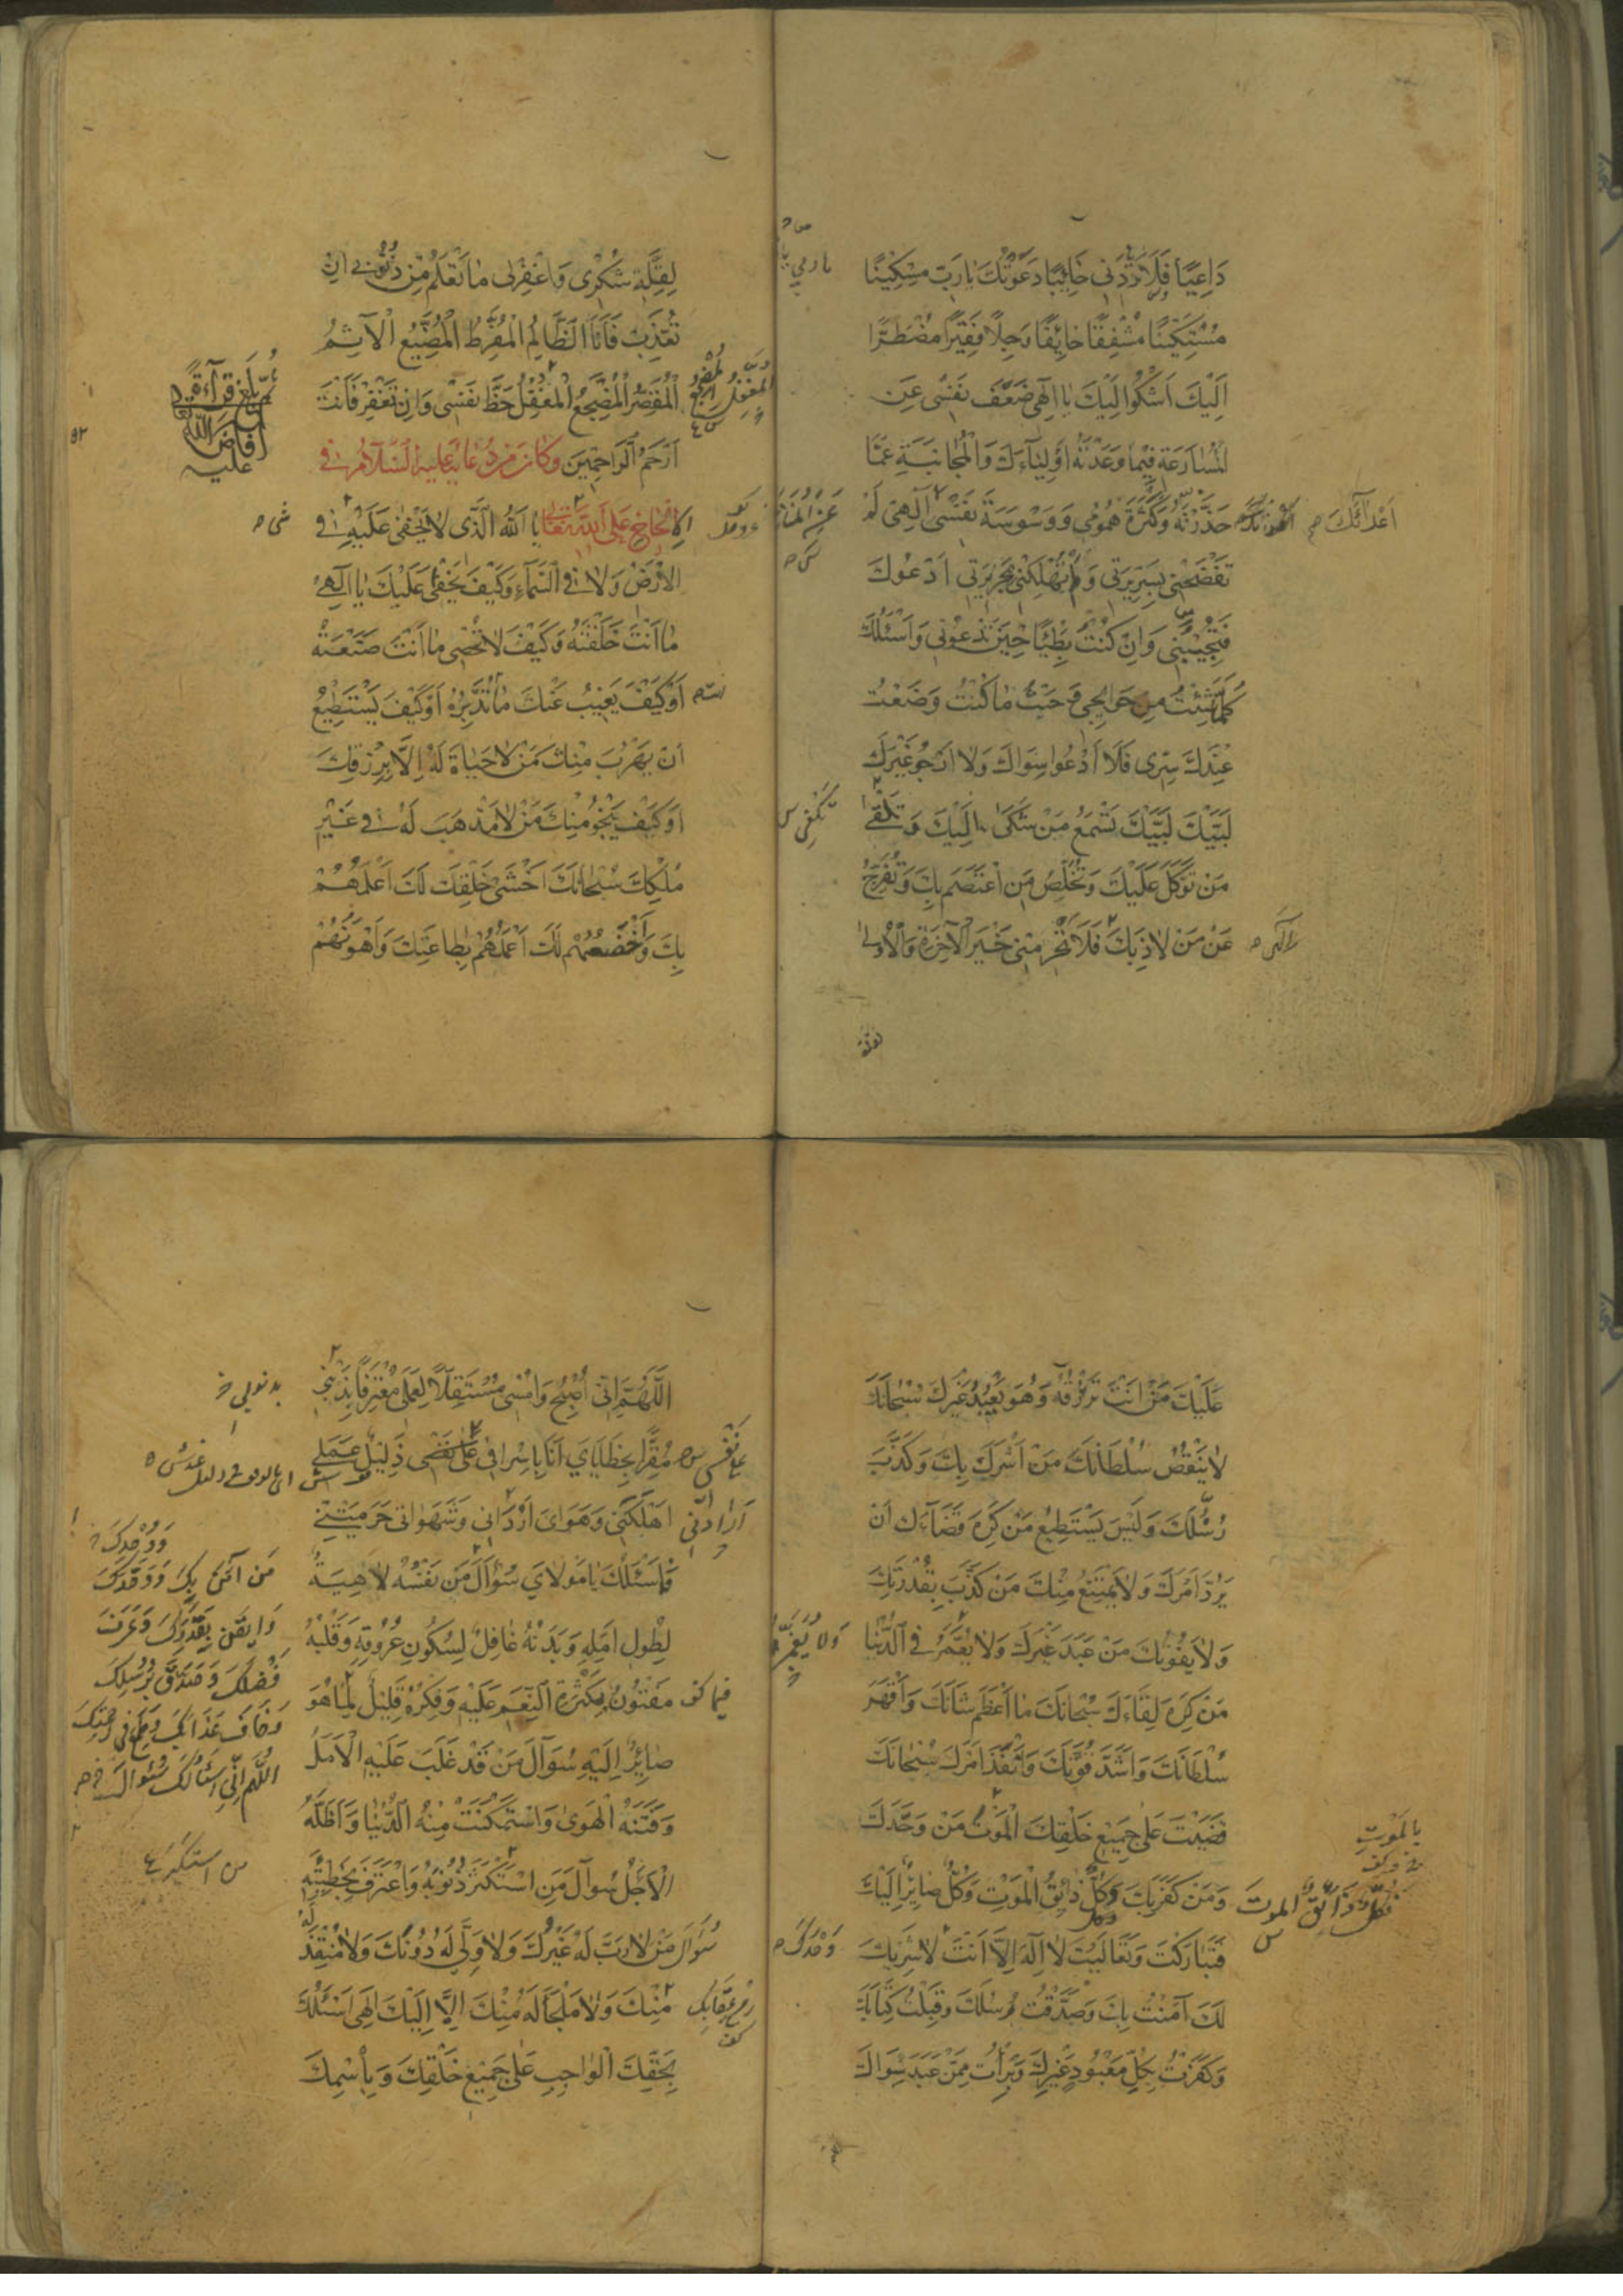 دَاعِيًا فَلَا تَرُدَّنِي خَائِبًا دَعَوْتُكَ يَا رَبِّ مِسْكِينًا
مُسْتَكِينًا مُشْفِقًا خَائِفًا وَجِلًا فَقِيرًا مُضْطَرًّا
اِلَيْكَ اَشْكُوا اِلَيْكَ يَا اِلٰهِي ضَعْفَ نَفْسِي عَنِ
الْمُسَارَعَةِ فِيمَا وَعَدْتَهُ اَوْلِيَاءَكَ وَالْمُجَانَبَةِ عَمَّا
حَذَّرْتَهُ اَعْدَائَكَ وَكَثْرَةَ هُمُومِي وَوَسْوَسَةَ نَفْسِي اِلٰهِي لَمْ
تَفْضَحْنِي بِسَرِيرَتِي وَلَمْ تُهْلِكْنِي بِجَرِيرَتِي اَدْعُوكَ
فَتُجِيبُنِي وَاِنْ كُنْتُ بَطِيئًا حِينَ تَدْعُونِي وَاَسْئَلُكَ
كُلَّمَا شِئْتُ مِنْ حَوَائِجِي وَحَيْثُ مَا كُنْتُ وَضَعْتُ
عِنْدَكَ سِرِّي فَلَا اَدْعُوا سِوَاكَ وَلَا اَرْجُو غَيْرَكَ
لَبَّيْكَ لَبَّيْكَ تَسْمَعُ مَنْ شَكَىٰ اِلَيْكَ وَتَلْقَىٰ
مَنْ تَوَكَّلَ عَلَيْكَ وَتُخَلِّصُ مَنِ اعْتَصَمَ بِكَ وَتُفَرِّجُ
عَنْ مَنْ لَاذَ بِكَ فَلَا تَحْرِمْنِي خَيْرَ الْآخِرَةِ وَالْاُولٰى
لِقِلَّةِ شُكْرِي وَاغْفِرْ لِي مَا تَعْلَمُ مِنْ ذُنُوبِي اِنْ
تُعَذِّبْ فَاَنَا الظَّالِمُ الْمُفَرِّطُ الْمُضَيِّعُ الْآثِمُ
الْمُقَصِّرُ الْمُضَجِّعُ الْمُغْفِلُ حَظَّ نَفْسِي وَاِنْ تَغْفِرْ فَاَنْتَ
ثُمَّ بَلَغَ قِرَاءَةً
اَفَاضَ اللّٰهُ
عَلَيْهِ
اَرْحَمُ الرَّاحِمِينَ وَكَانَ مِنْ دُعَائِهِ عَلَيْهِ السَّلَامُ فِي
الْاِلْحَاحِ عَلَى اللّٰهِ تَعَالٰى يَا اَللّٰهُ الَّذِي لَا يَخْفٰى عَلَيْهِ شَيْءٌ فِي
الْاَرْضِ وَلَا فِي السَّمَاءِ وَكَيْفَ يَخْفٰى عَلَيْكَ يَا اِلٰهِي
مَا اَنْتَ خَلَقْتَهُ وَكَيْفَ لَا تُحْصِي مَا اَنْتَ صَنَعْتَهُ
اَوْ كَيْفَ يَغِيبُ عَنْكَ مَا تُدَبِّرُهُ اَوْ كَيْفَ يَسْتَطِيعُ
اَنْ يَهْرُبَ مِنْكَ مَنْ لَا حَيَاةَ لَهُ اِلَّا بِرِزْقِكَ
اَوْ كَيْفَ يَنْجُو مِنْكَ مَنْ لَا مَذْهَبَ لَهُ فِي غَيْرِ
مُلْكِكَ سُبْحَانَكَ اَخْشٰى خَلْقِكَ لَكَ اَعْلَمُهُمْ
بِكَ وَاَخْضَعُهُمْ لَكَ اَعْمَلُهُمْ بِطَاعَتِكَ وَاَهْوَنُهُمْ
عَلَيْكَ مَنْ اَنْتَ تَرْزُقُهُ وَهُوَ يَعْبُدُ غَيْرَكَ سُبْحَانَكَ
لَا يَنْقُصُ سُلْطَانَكَ مَنْ اَشْرَكَ بِكَ وَكَذَّبَ
رُسُلَكَ وَلَيْسَ يَسْتَطِيعُ مَنْ كَرِهَ قَضَاءَكَ اَنْ
يَرُدَّ اَمْرَكَ وَلَا يَمْتَنِعُ مِنْكَ مَنْ كَذَّبَ بِقُدْرَتِكَ
وَلَا يَفُوتُكَ مَنْ عَبَدَ غَيْرَكَ وَلَا يُعَمَّرُ فِي الدُّنْيَا
مَنْ كَرِهَ لِقَاءَكَ سُبْحَانَكَ مَا اَعْظَمَ شَانَكَ وَاَقْهَرَ
سُلْطَانَكَ وَاَشَدَّ قُوَّتَكَ وَاَنْفَذَ اَمْرَكَ سُبْحَانَكَ
قَضَيْتَ عَلٰى جَمِيعِ خَلْقِكَ الْمَوْتَ مَنْ وَحَّدَكَ
بِالْمَوْتِ
وَمَنْ كَفَرَ بِكَ وَكُلٌّ ذَائِقُ الْمَوْتِ وَكُلٌّ صَائِرٌ اِلَيْكَ
فَكُلٌّ ذَائِقُ الْمَوْتِ
فَتَبَارَكْتَ وَتَعَالَيْتَ لَا اِلٰهَ اِلَّا اَنْتَ وَحْدَكَ لَا شَرِيكَ
لَكَ آمَنْتُ بِكَ وَصَدَّقْتُ رُسُلَكَ وَقَبِلْتُ كِتَابَكَ
وَكَفَرْتُ بِكُلِّ مَعْبُودٍ غَيْرِكَ وَبَرِئْتُ مِمَّنْ عَبَدَ سِوَاكَ
اَللّٰهُمَّ اِنِّي اُصْبِحُ وَاُمْسِي مُسْتَقِلًّا لِعَمَلِي مُعْتَرِفًا بِذَنْبِي
مُقِرًّا بِخَطَايَايَ اَنَا بِاِسْرَافِي عَلٰى نَفْسِي ذَلِيلٌ عَمَلِي
اَهْلَكَنِي وَهَوَايَ اَرْدَانِي وَشَهَوَاتِي حَرَمَتْنِي
فَاَسْئَلُكَ يَا مَوْلَايَ سُؤَالَ مَنْ نَفْسُهُ لَاهِيَةٌ
لِطُولِ اَمَلِهِ وَبَدَنُهُ غَافِلٌ لِسُكُونِ عُرُوقِهِ وَقَلْبُهُ
مَفْتُونٌ بِكَثْرَةِ النِّعَمِ عَلَيْهِ وَفِكْرُهُ قَلِيلٌ لِمَا هُوَ
صَائِرٌ اِلَيْهِ سُؤَالَ مَنْ قَدْ غَلَبَ عَلَيْهِ الْاَمَلُ
وَفَتَنَهُ الْهَوٰى وَاسْتَمْكَنَتْ مِنْهُ الدُّنْيَا وَاَظَلَّهُ
الْاَجَلُ سُؤَالَ مَنِ اسْتَكْثَرَ ذُنُوبَهُ وَاعْتَرَفَ بِخَطِيئَتِهِ
سُؤَالَ مَنْ لَا رَبَّ لَهُ غَيْرُكَ وَلَا وَلِيَّ لَهُ دُونَكَ وَلَا مُنْقِذَ لَهُ
مِنْكَ وَلَا مَلْجَأَ لَهُ مِنْكَ اِلَّا اِلَيْكَ اِلٰهِي اَسْئَلُكَ
بِحَقِّكَ الْوَاجِبِ عَلٰى جَمِيعِ خَلْقِكَ وَبِاسْمِكَ
مَنْ آمَنَ بِكَ وَوَحَّدَكَ
وَاَيْقَنَ بِقُدْرَتِكَ وَعَرَفَ
فَضْلَكَ وَصَدَّقَ بِرُسُلِكَ
وَخَافَ عَذَابَكَ وَطَمِعَ فِي رَحْمَتِكَ
اَللّٰهُمَّ اِنِّي اَسْئَلُكَ سُؤَالَ